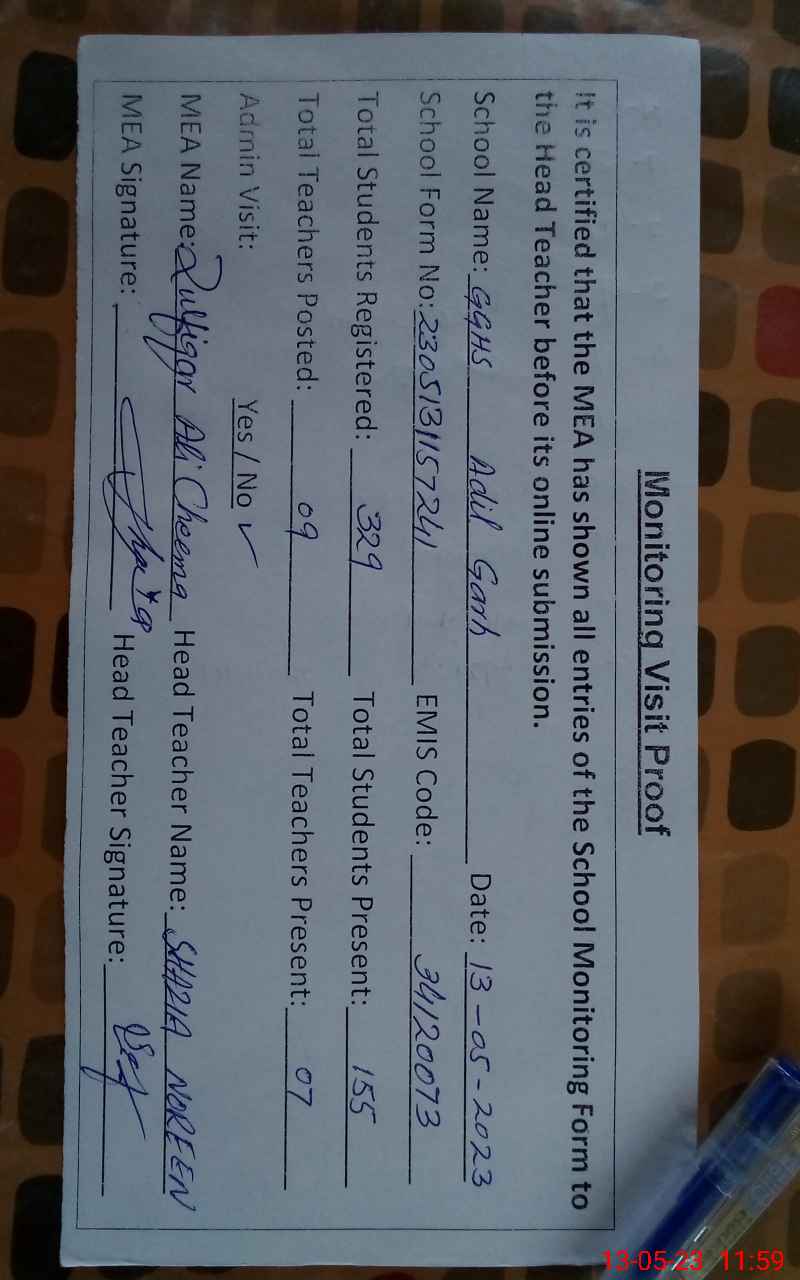 Monitoring Visit Proof
It is certified that the MEA has shown all entries of the School Monitoring Form to
the Head Teacher before its online submission.
School Name: GGHS Adil Garh Date: 13-05-2023
School Form No: 2305131157241 EMIS Code: 34120073
Total Students Registered: 329 Total Students Present: 155
Total Teachers Posted: 09 Total Teachers Present: 07
Admin Visit: Yes / No ✓
MEA Name: Zulfiqar Ali Cheema Head Teacher Name: SHAZIA NOREEN
MEA Signature: Head Teacher Signature:
13-05-23 11:59